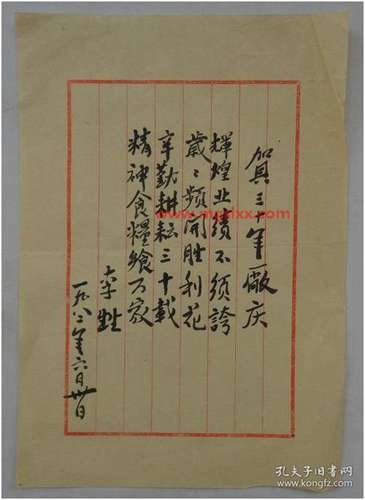 賀三十年廠庆
輝煌业绩不须誇
歲〻頻開胜利花
辛勤耕耘三十載
精神食糧飨万家
李
一九八二年六月卅日
孔夫子旧书网
kongfz.com